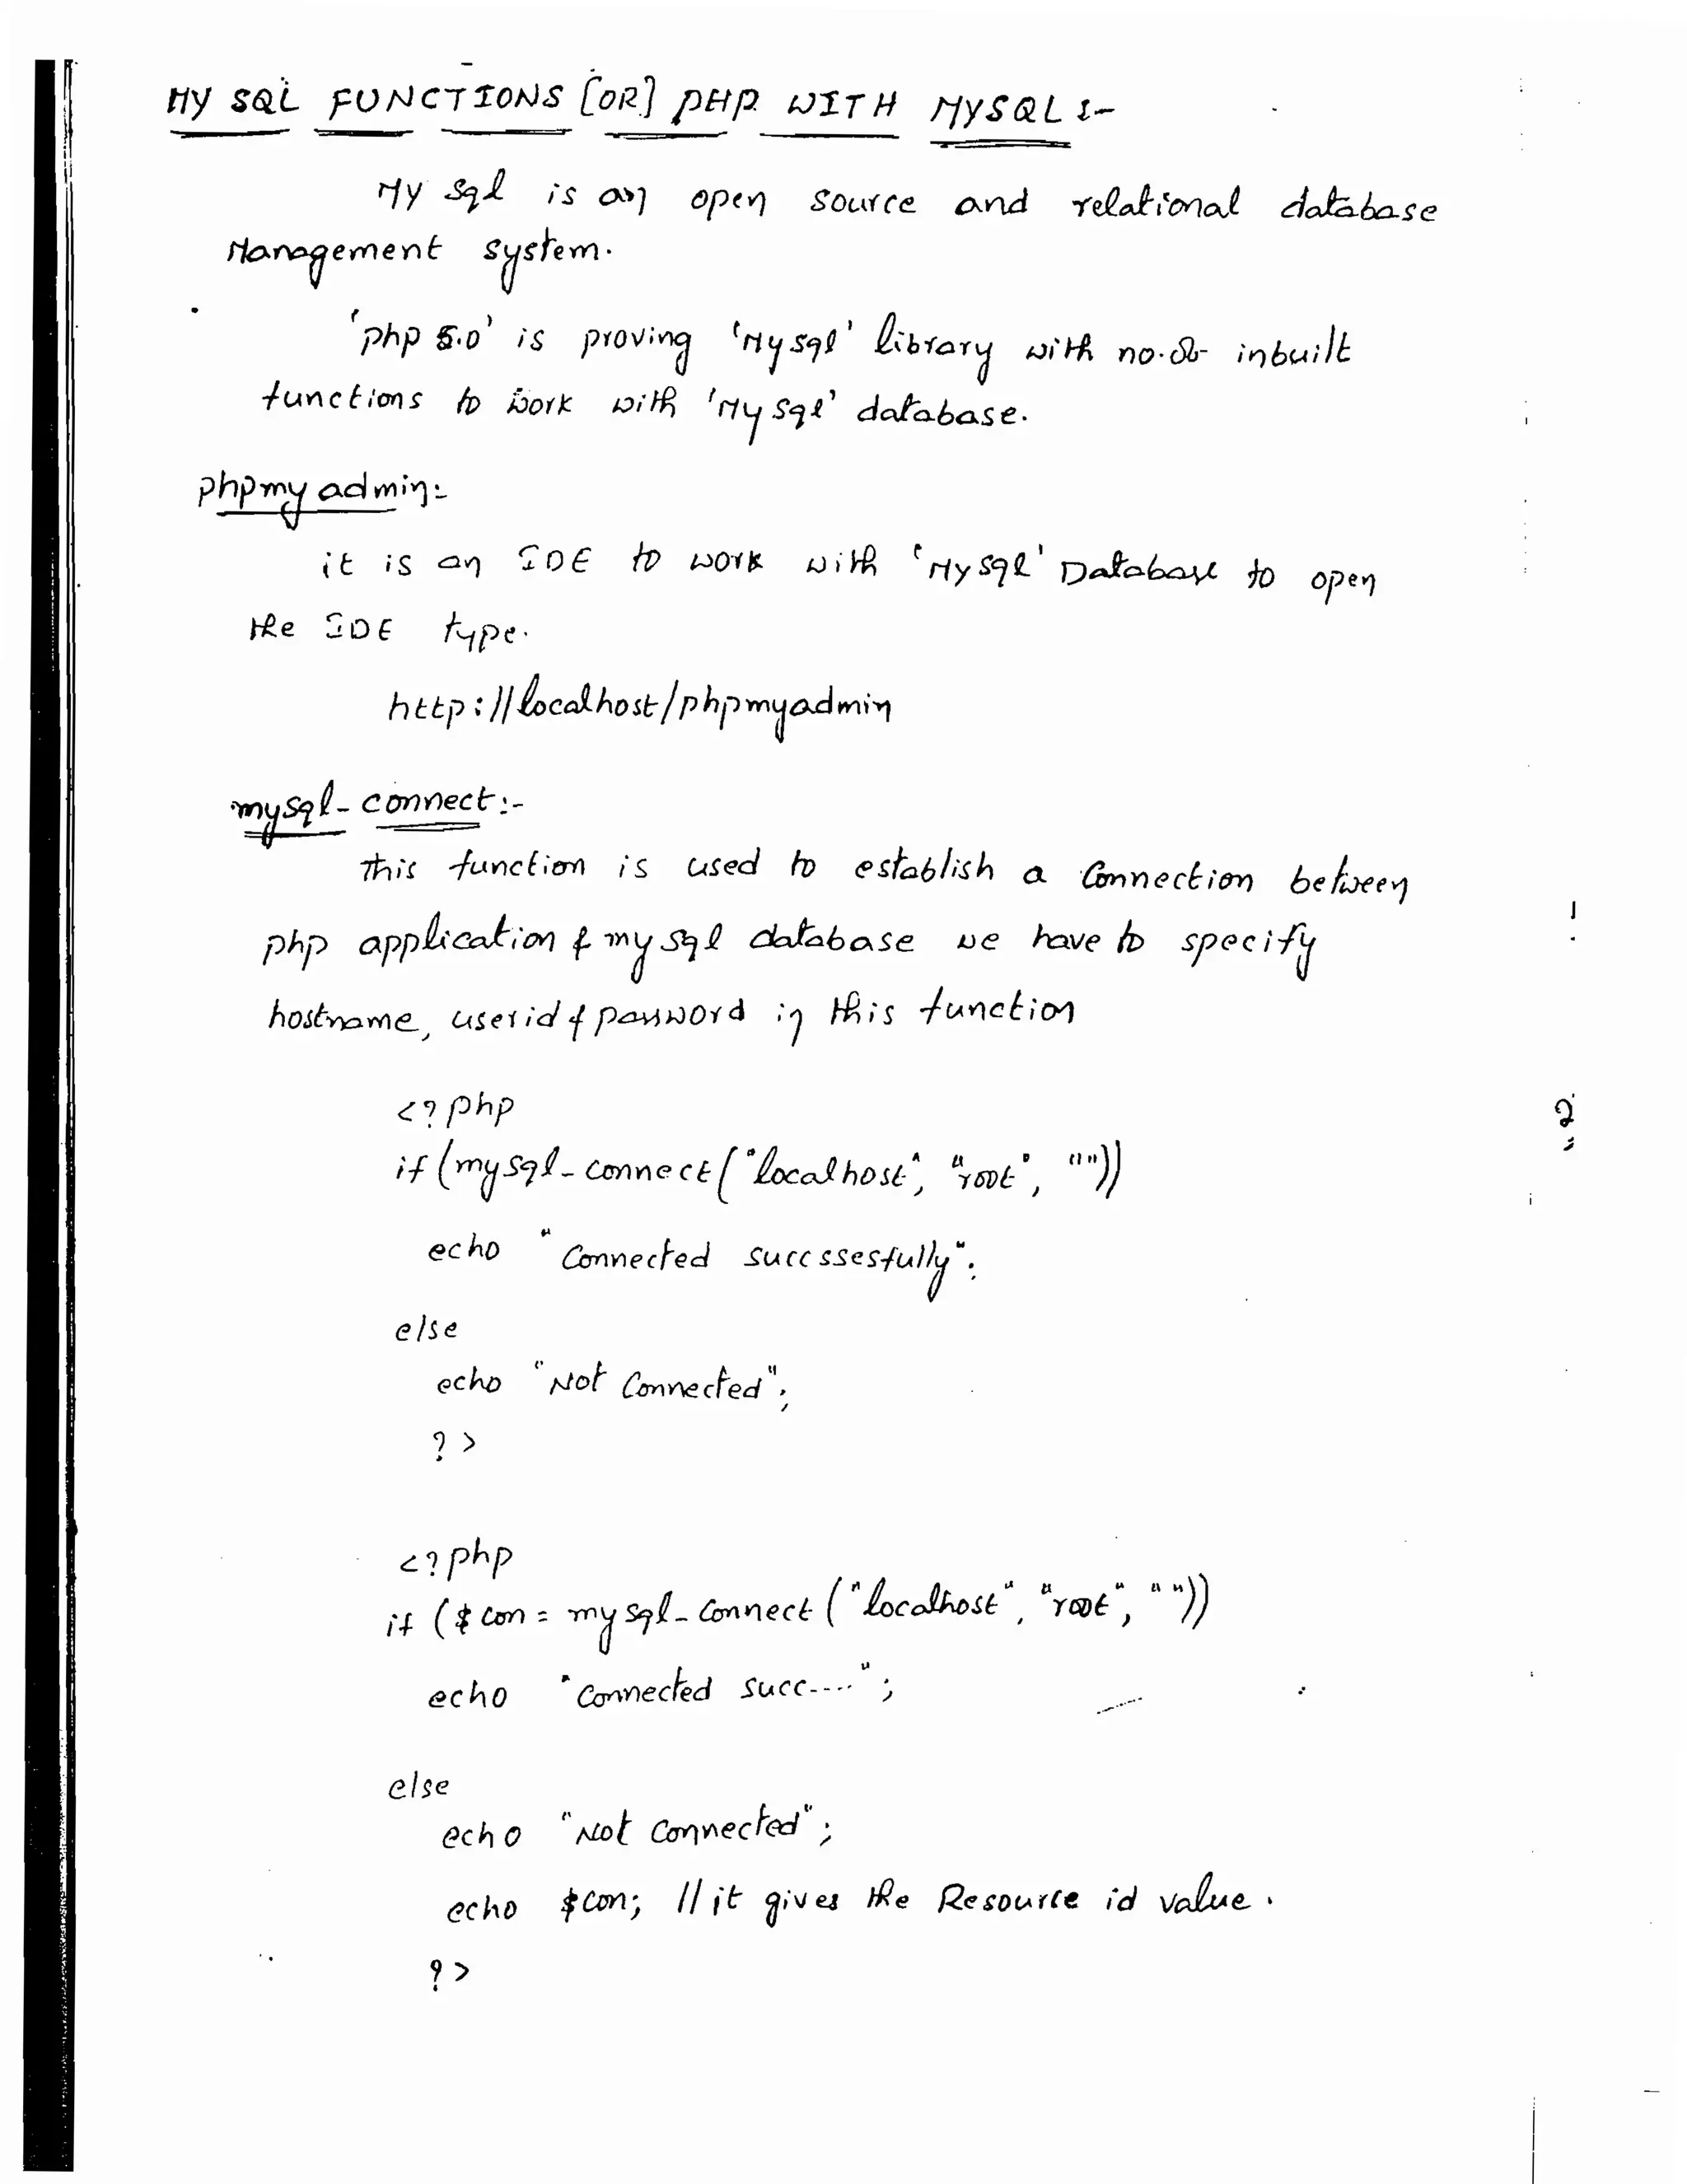 MY SQL FUNCTIONS [OR] PHP WITH MYSQL :-
My sql is an open source and relational database
Management system.
'php 5.0' is proving 'Mysql' library with no.of inbuilt
functions to work with 'My sql' database.
phpmy admin:-
it is an IDE to work with 'My sql' Database to open
the IDE type.
http://localhost/phpmyadmin
mysql-connect:-
This function is used to establish a Connection between
php application & my sql database we have to specify
hostname, userid & password in this function
<?php
if (mysql-connect("localhost", "root", ""))
echo "Connected succssesfully";
else
echo "Not Connected";
?>
<?php
if ($con = mysql-connect("localhost", "root", ""))
echo "connected succ....";
else
echo "Not connected";
echo $con; // it gives the Resource id value.
?>
2